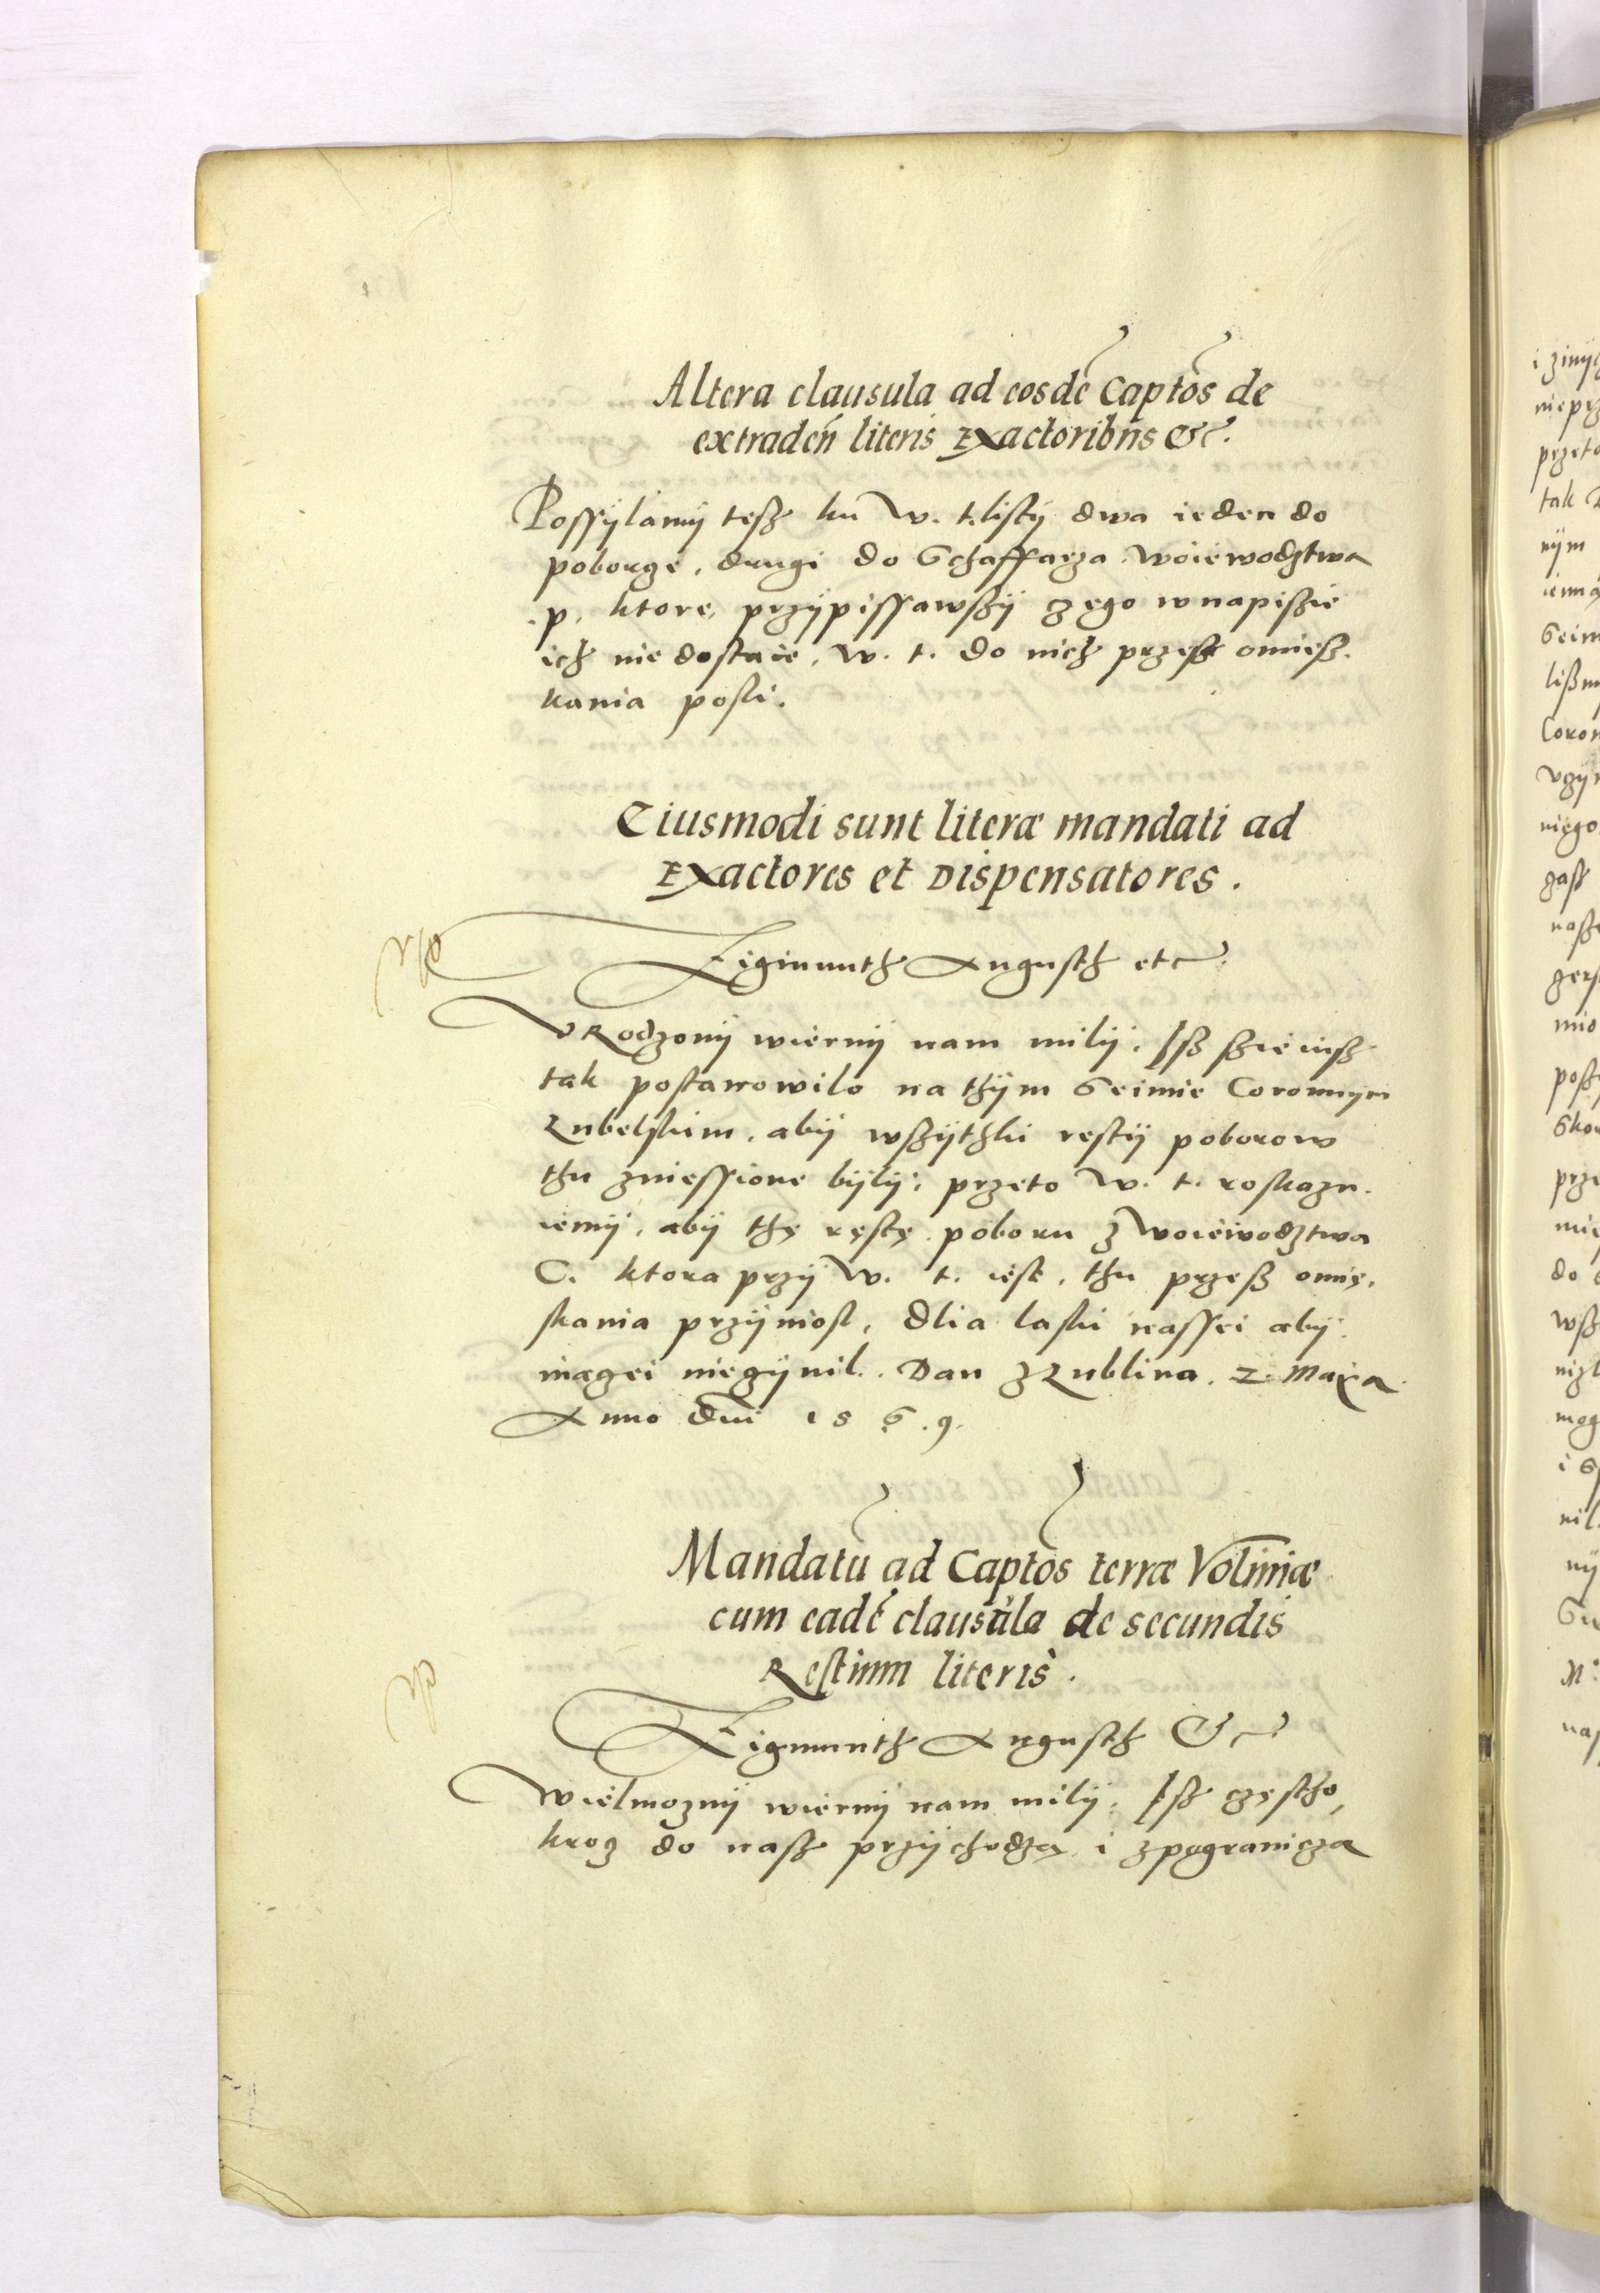 Altera clausula ad eosdē Captōs de
extradeń literis Exactoribus &c.
Possylamy tesz ku W. t. listy dwa ieden do
poborcze, drugi do Schaffarza woiewodztwa
p. ktore, przypissawszy czego w napiszie
ich nie dostaie, W. t. do nich przesz omiesz-
kania posli.
Eiusmodi sunt literæ mandati ad
Exactores et Dispensatores.
Zigmunth Augusth etc
Urodzony wierny nam mily. Isz szie iusz
tak postanowilo na thym Seimie Coronnym
Lubelskim, aby wszythki resty poborow
thu zniessione byly, przeto W. t. roskazu-
iemy, aby thę restę poboru z woiewodztwa
C. ktora przy W. t. iest, thu przesz omię-
skania przyniosl, dlia laski nassei aby
inaczei nieczynil. Dan z Lublina. 2. Maiia
Anno dni 1569.
Mandatū ad Captōs terræ Voliniæ
cum eadē clausula de secundis
Restium literis.
Zigmunth Augusth &c
Wielmozny wierny nam mily. Isz częstho
kroz do nasz przychodzą i z pogranicza
i ziny
prze
tak
nym
Coron
niego